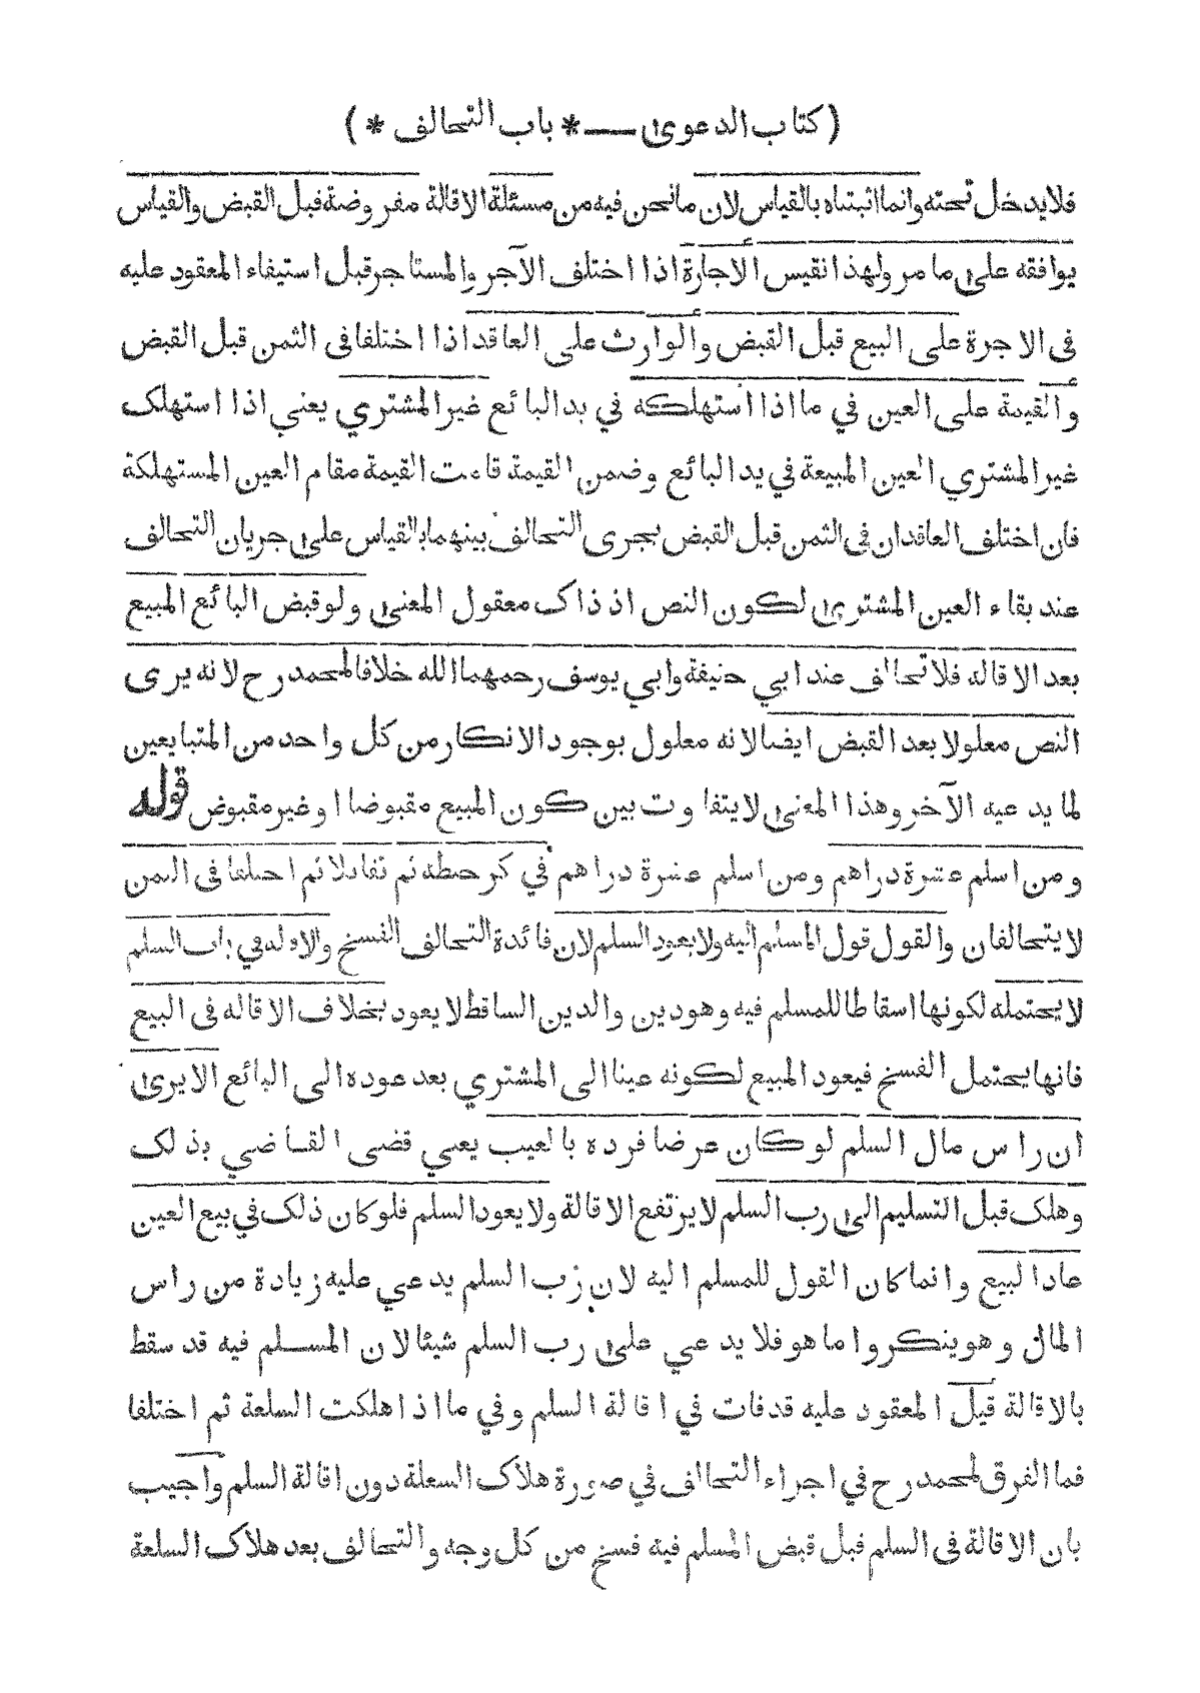 ( كتاب الدعوى — * باب التحالف * )
فلا يدخل تحته وانما اثبتناه بالقياس لان ما نحن فيه من مسئلة الاقالة مفروضة قبل القبض والقياس
يوافقه على ما مر ولهذا نقيس الاجارة اذا اختلف الآجر والمستاجر قبل استيفاء المعقود عليه
فى الاجرة على البيع قبل القبض والوارث على العاقد اذا اختلفا فى الثمن قبل القبض
والقيمة على العين في ما اذا استهلكه في يد البائع غير المشتري يعني اذا استهلك
غير المشتري العين المبيعة في يد البائع وضمن القيمة قامت القيمة مقام العين المستهلكة
فان اختلف العاقدان فى الثمن قبل القبض يجرى التحالف بينهما بالقياس على جريان التحالف
عند بقاء العين المشترى لكون النص اذ ذاك معقول المعنى ولو قبض البائع المبيع
بعد الاقاله فلا تحالف عند ابي حنيفة وابي يوسف رحمهما الله خلافا لمحمد رح لانه يرى
النص معلولا بعد القبض ايضا لانه معلول بوجود الانكار من كل واحد من المتبايعين
لما يدعيه الآخر وهذا المعنى لا يتفاوت بين كون المبيع مقبوضا او غير مقبوض قوله
ومن اسلم عشرة دراهم ومن اسلم عشرة دراهم في كر حنطة ثم تقايلا ثم اختلفا فى الثمن
لا يتحالفان والقول قول المسلم اليه ولا يعود السلم لان فائدة التحالف الفسخ والاقاله في باب السلم
لا يحتمله لكونها اسقاطا للمسلم فيه وهو دين والدين الساقط لا يعود بخلاف الاقاله فى البيع
فانها يحتمل الفسخ فيعود المبيع لكونه عينا الى المشتري بعد عوده الى البائع الا يرى
ان راس مال السلم لو كان عرضا فرده بالعيب يعني قضى القاضي بذلك
وهلك قبل التسليم الى رب السلم لا يرتفع الاقالة ولا يعود السلم فلو كان ذلك في بيع العين
عاد البيع وانما كان القول للمسلم اليه لان رب السلم يدعي عليه زيادة من راس
المال وهو ينكر واما هو فلا يدعي على رب السلم شيئا لان المسلم فيه قد سقط
بالاقالة قيل المعقود عليه قد فات في اقالة السلم وفي ما اذا هلكت السلعة ثم اختلفا
فما الفرق لمحمد رح في اجراء التحالف في صورة هلاك السعلة دون اقالة السلم واجيب
بان الاقالة فى السلم قبل قبض المسلم فيه فسخ من كل وجه والتحالف بعد هلاك السلعة